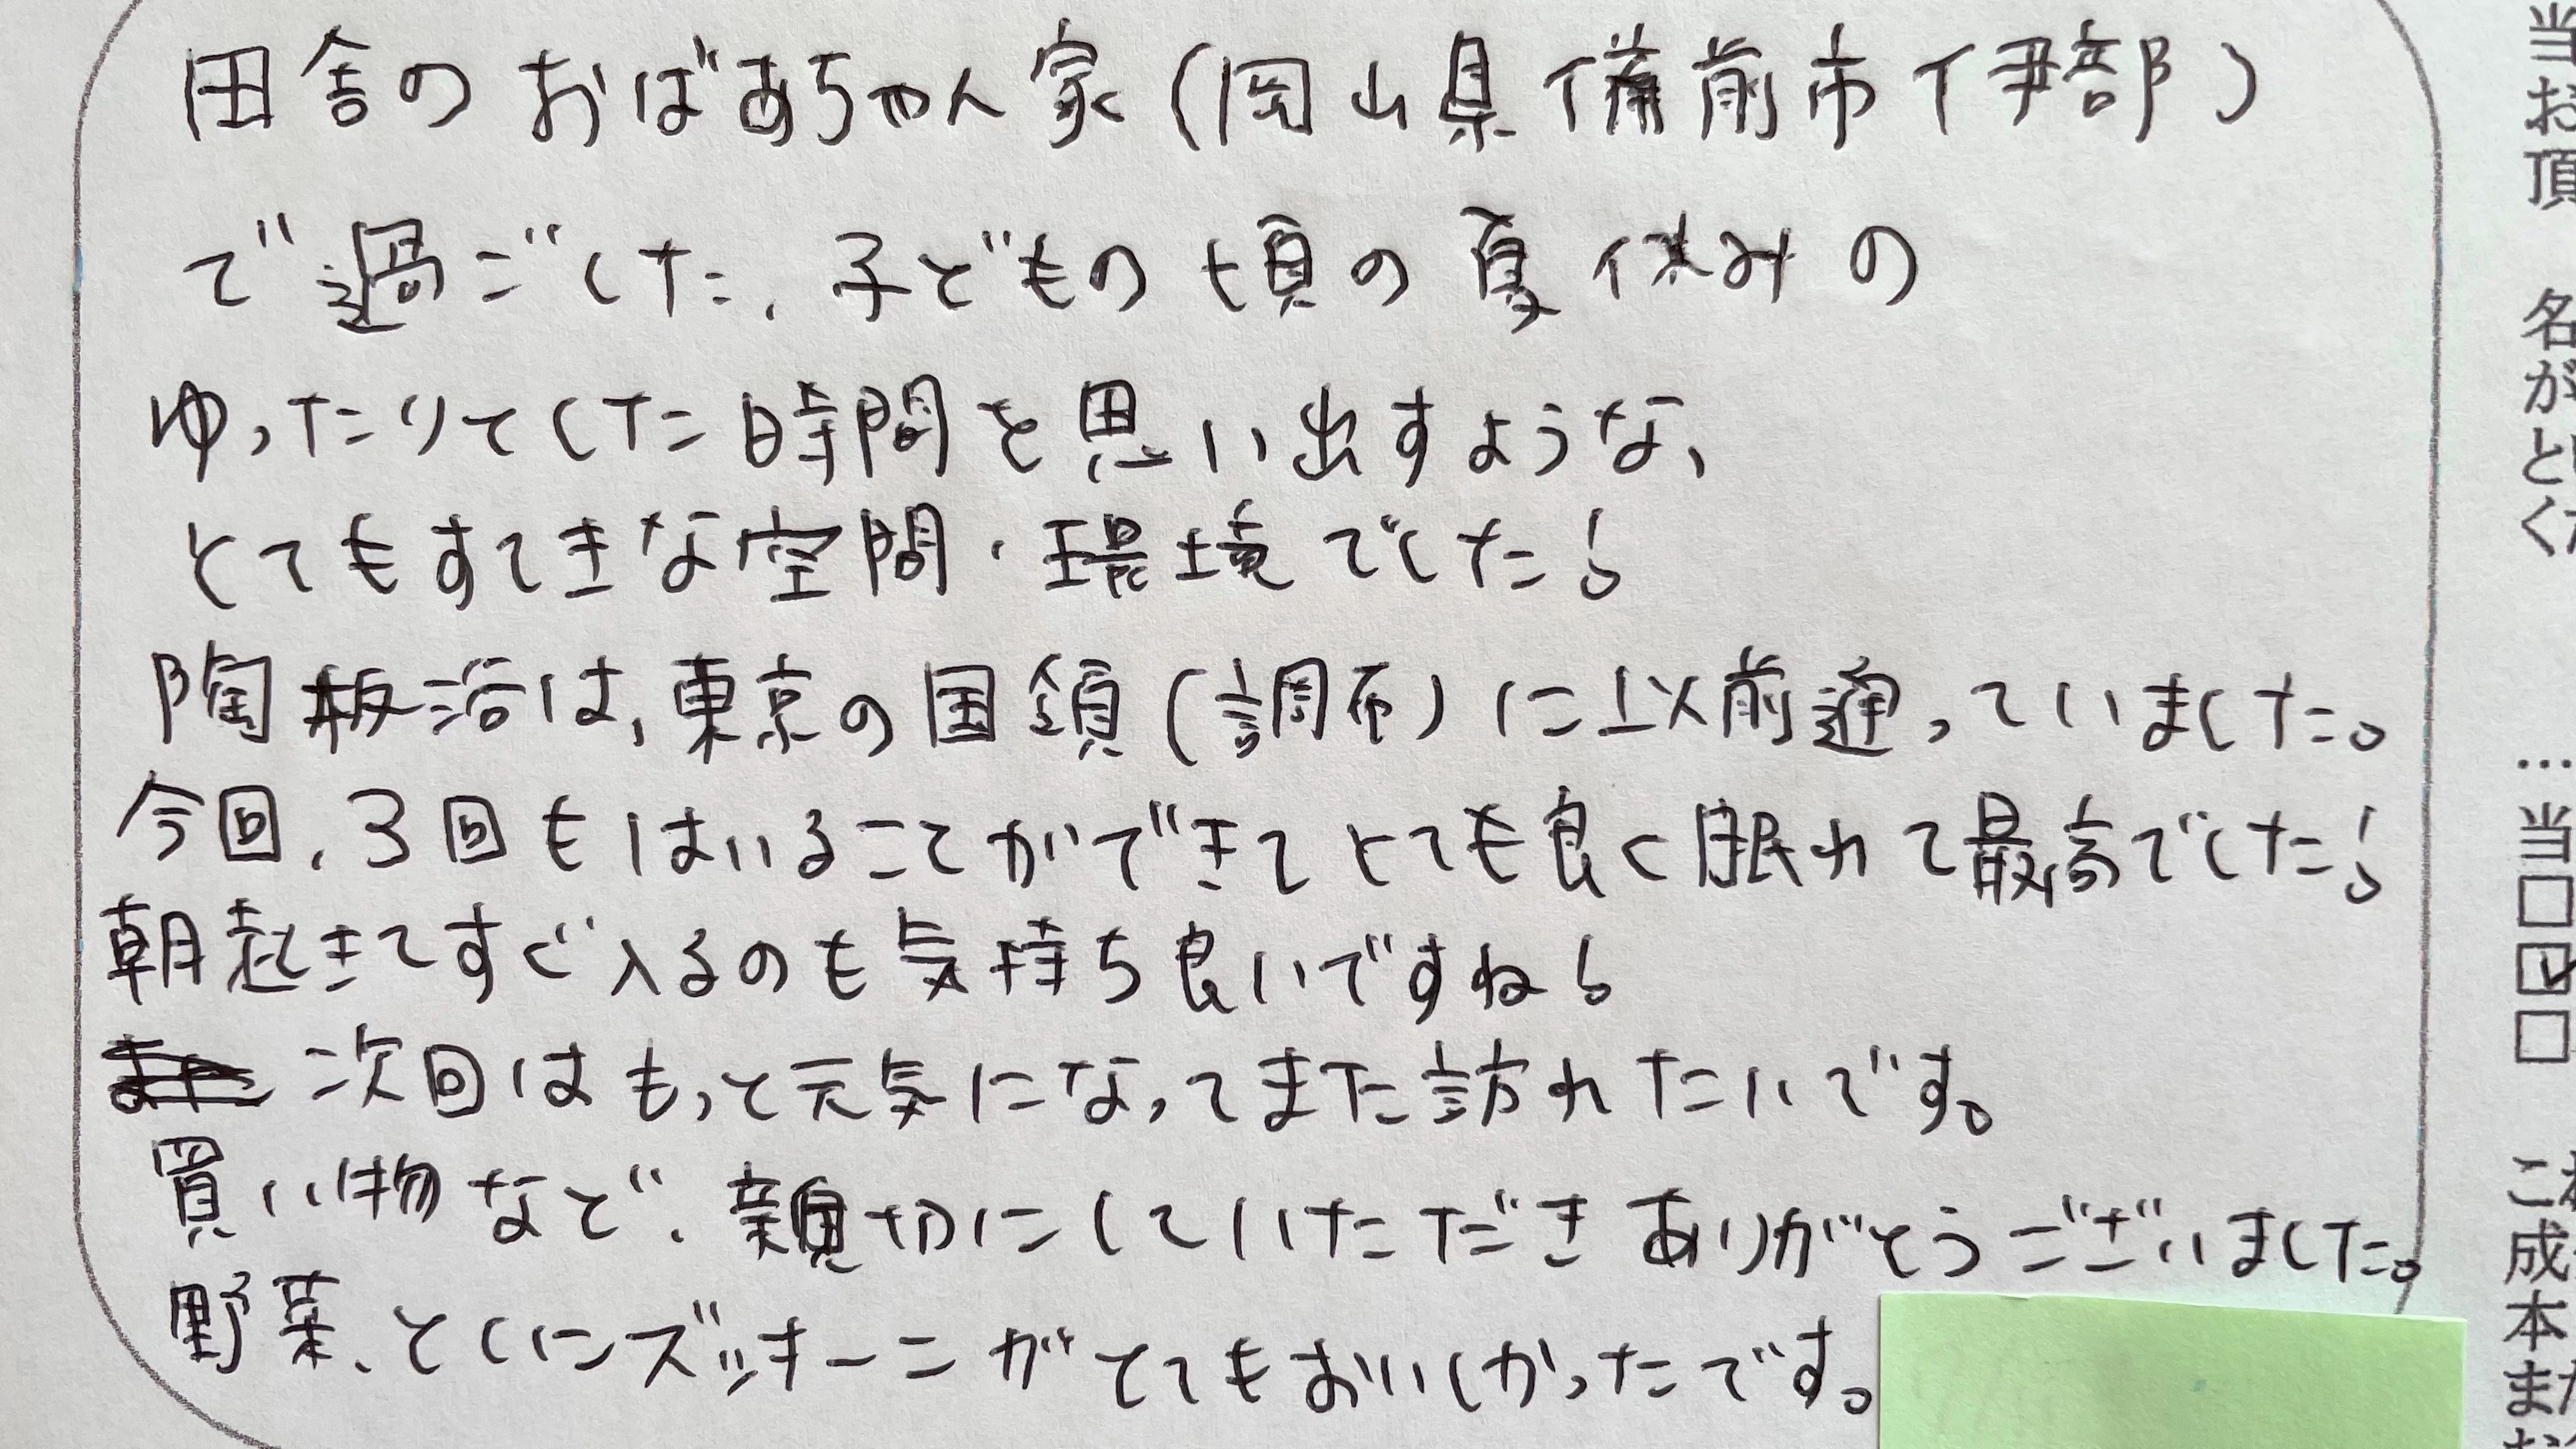 田舎のおばあちゃん家(岡山県備前市伊部)
で過ごした、子どもの頃の夏休みの
ゆったりとした時間を思い出すような、
とてもすてきな空間・環境でした!
陶板浴は、東京の国領(調布)に以前通っていました。
今回、3回もはいることができてとても良く眠れて最高でした!
朝起きてすぐ入るのも気持ち良いですね!
次回はもっと元気になってまた訪れたいです。
買い物など、親切にしていただきありがとうございました。
野菜、とくにズッキーニがとてもおいしかったです。
当
お
頂
名
が
と
く
…
当
□
☑
□
こ
成
本
ま